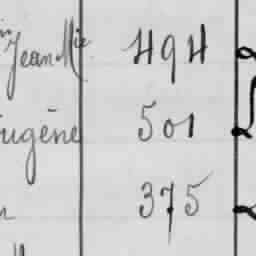 Jean Mie 494
Eugène 501
375